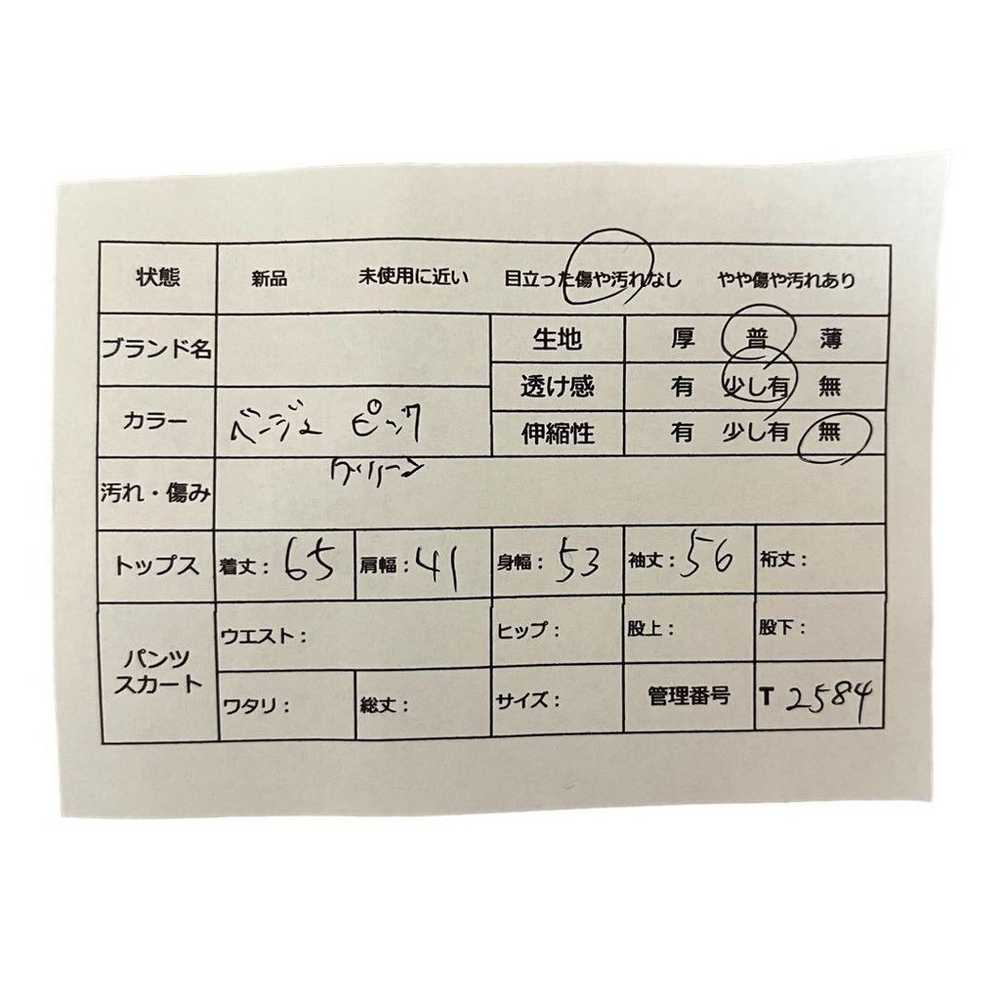 状態 新品 未使用に近い 目立った傷や汚れなし やや傷や汚れあり
ブランド名 生地 厚 普 薄
透け感 有 少し有 無
カラー ベージュ ピンク 伸縮性 有 少し有 無
グリーン
汚れ・傷み
トップス 着丈：65 肩幅：41 身幅：53 袖丈：56 裄丈：
パンツ スカート ウエスト： ヒップ： 股上： 股下：
ワタリ： 総丈： サイズ： 管理番号 T 2584